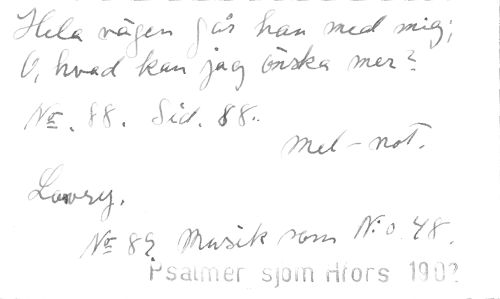 Hela vägen går han med mig;
O, hvad kan jag önska mer?
No. 88. Sid. 88.
mel-not.
Lowry.
No 89 Musik som No 48.
Psalmer sjöm Hfors 1902